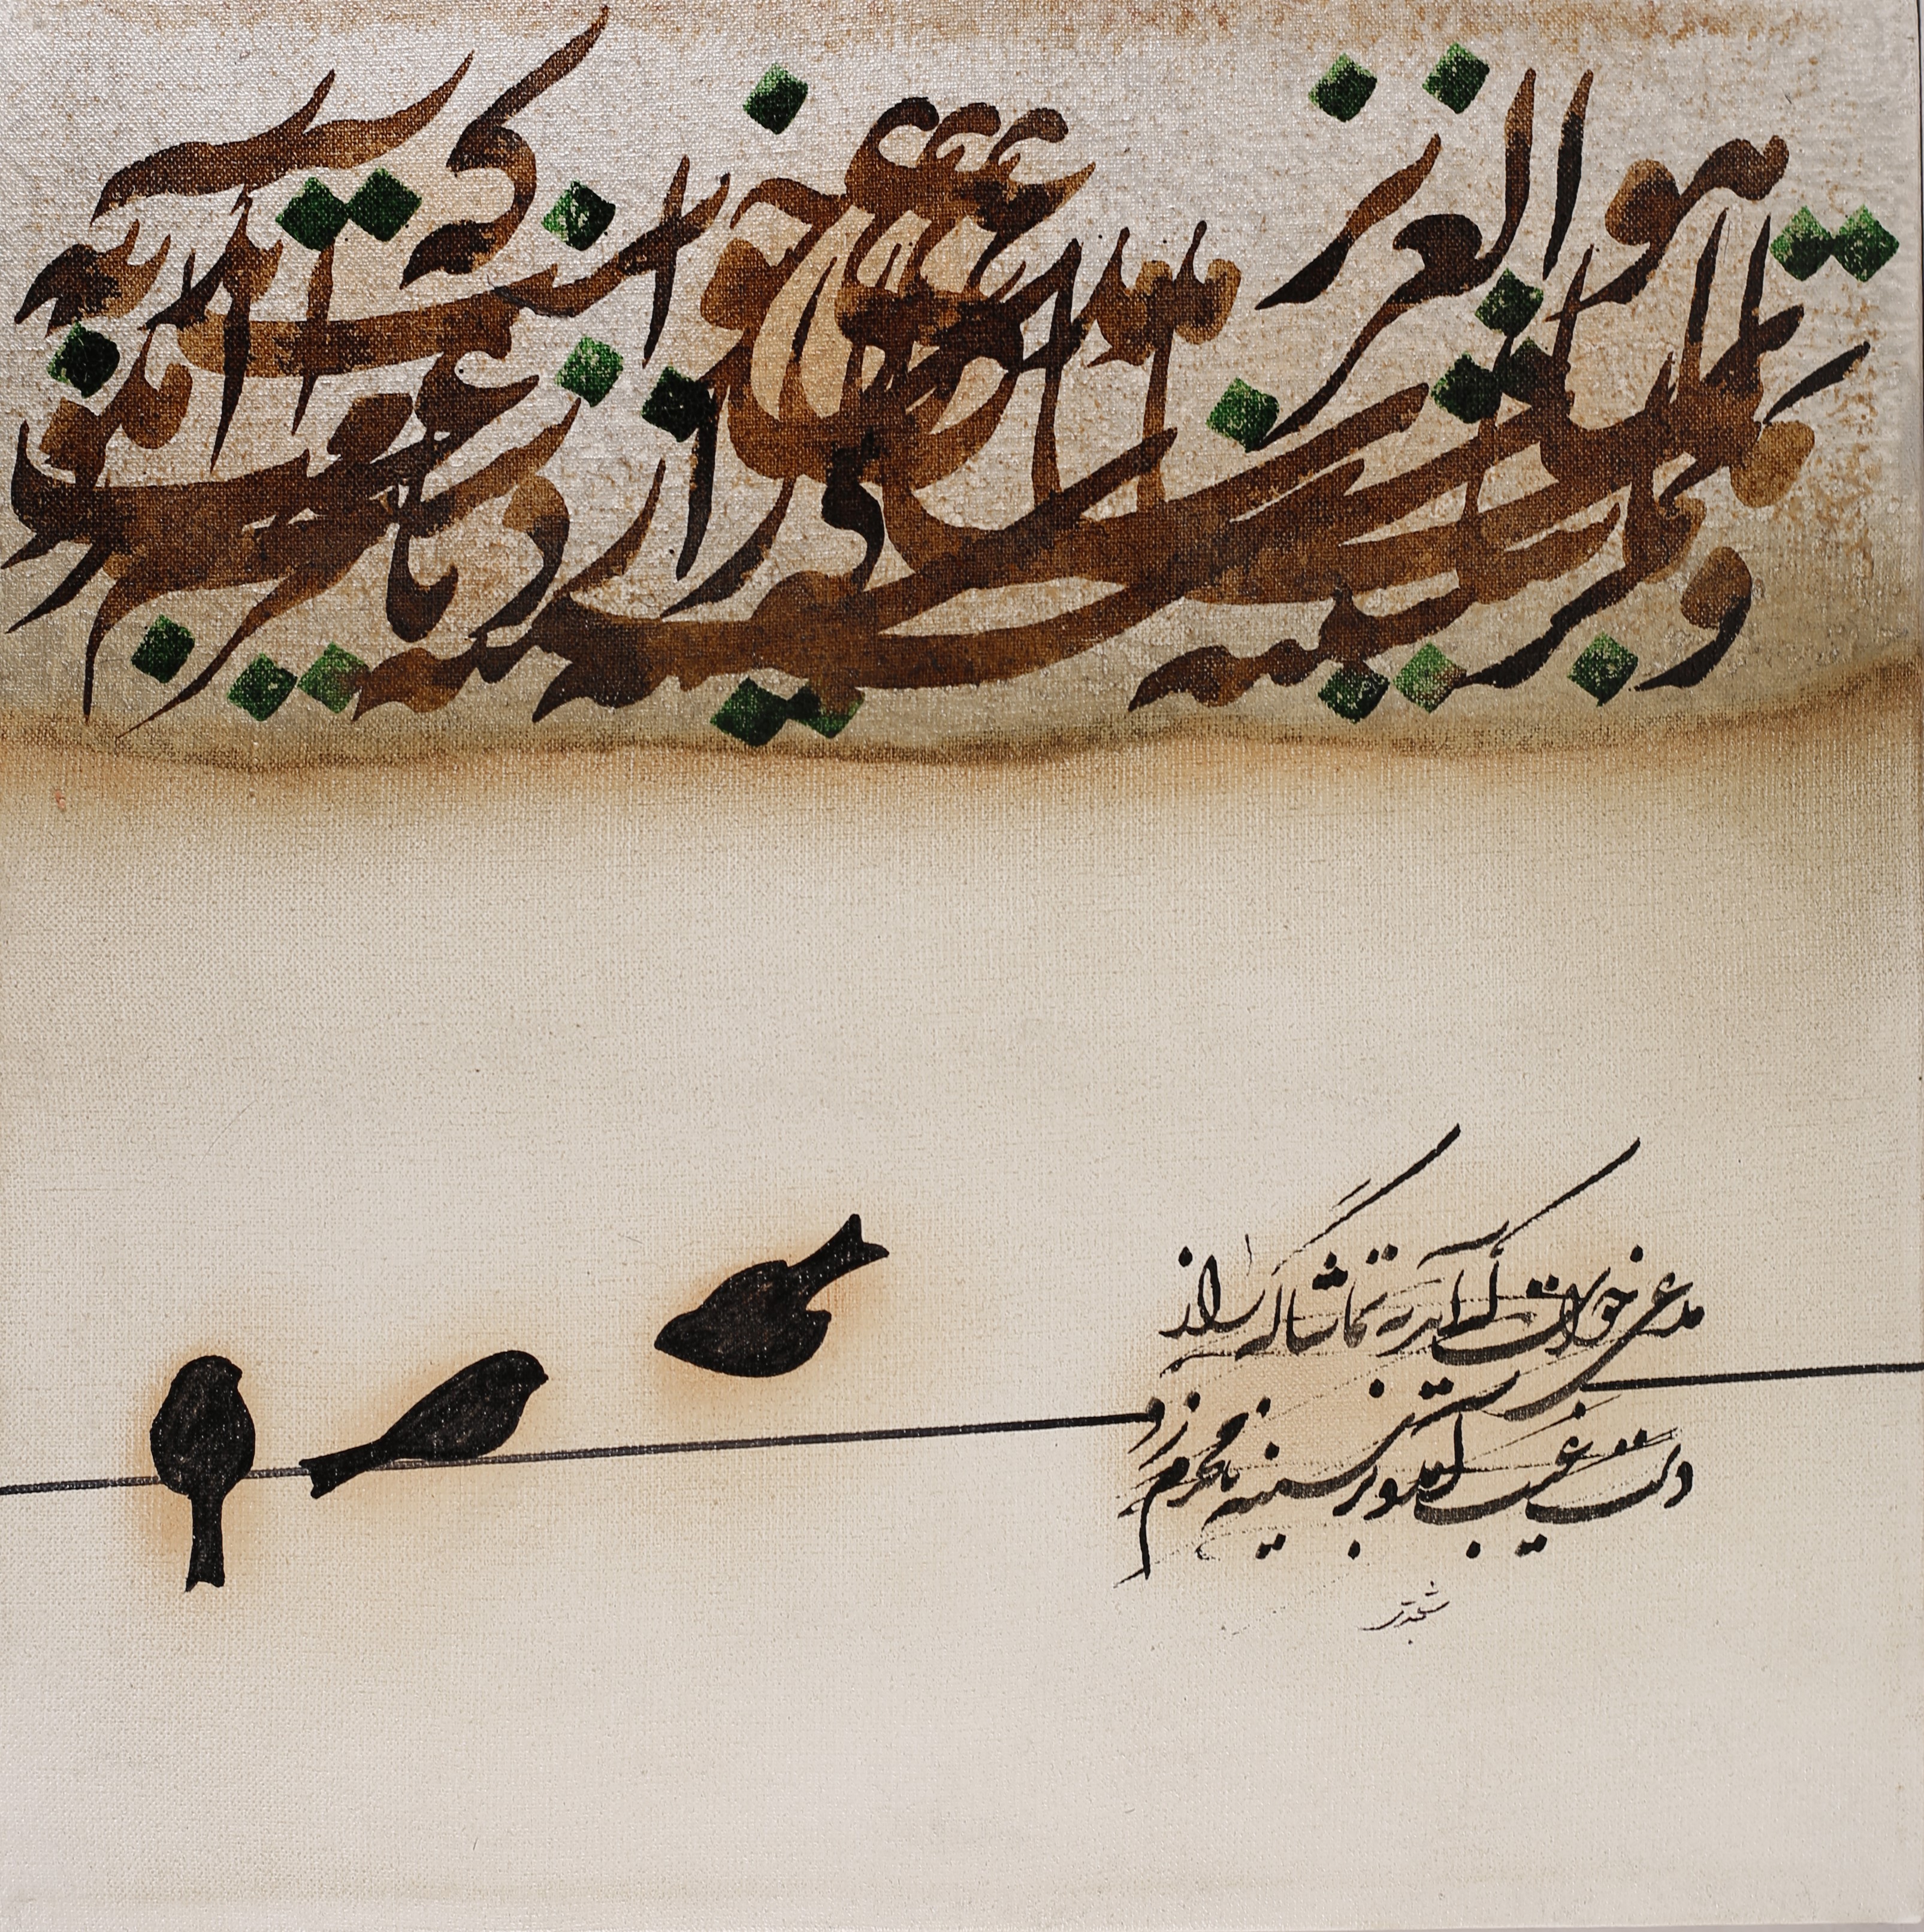 هوالعزیز
مدعی خواست که آید به
تماشاگه راز
دست غیب آمد و
بر سینه نامحرم زد
مدعی خواست که آید به تماشاگه راز
دست غیب آمد و بر سینه نامحرم زد